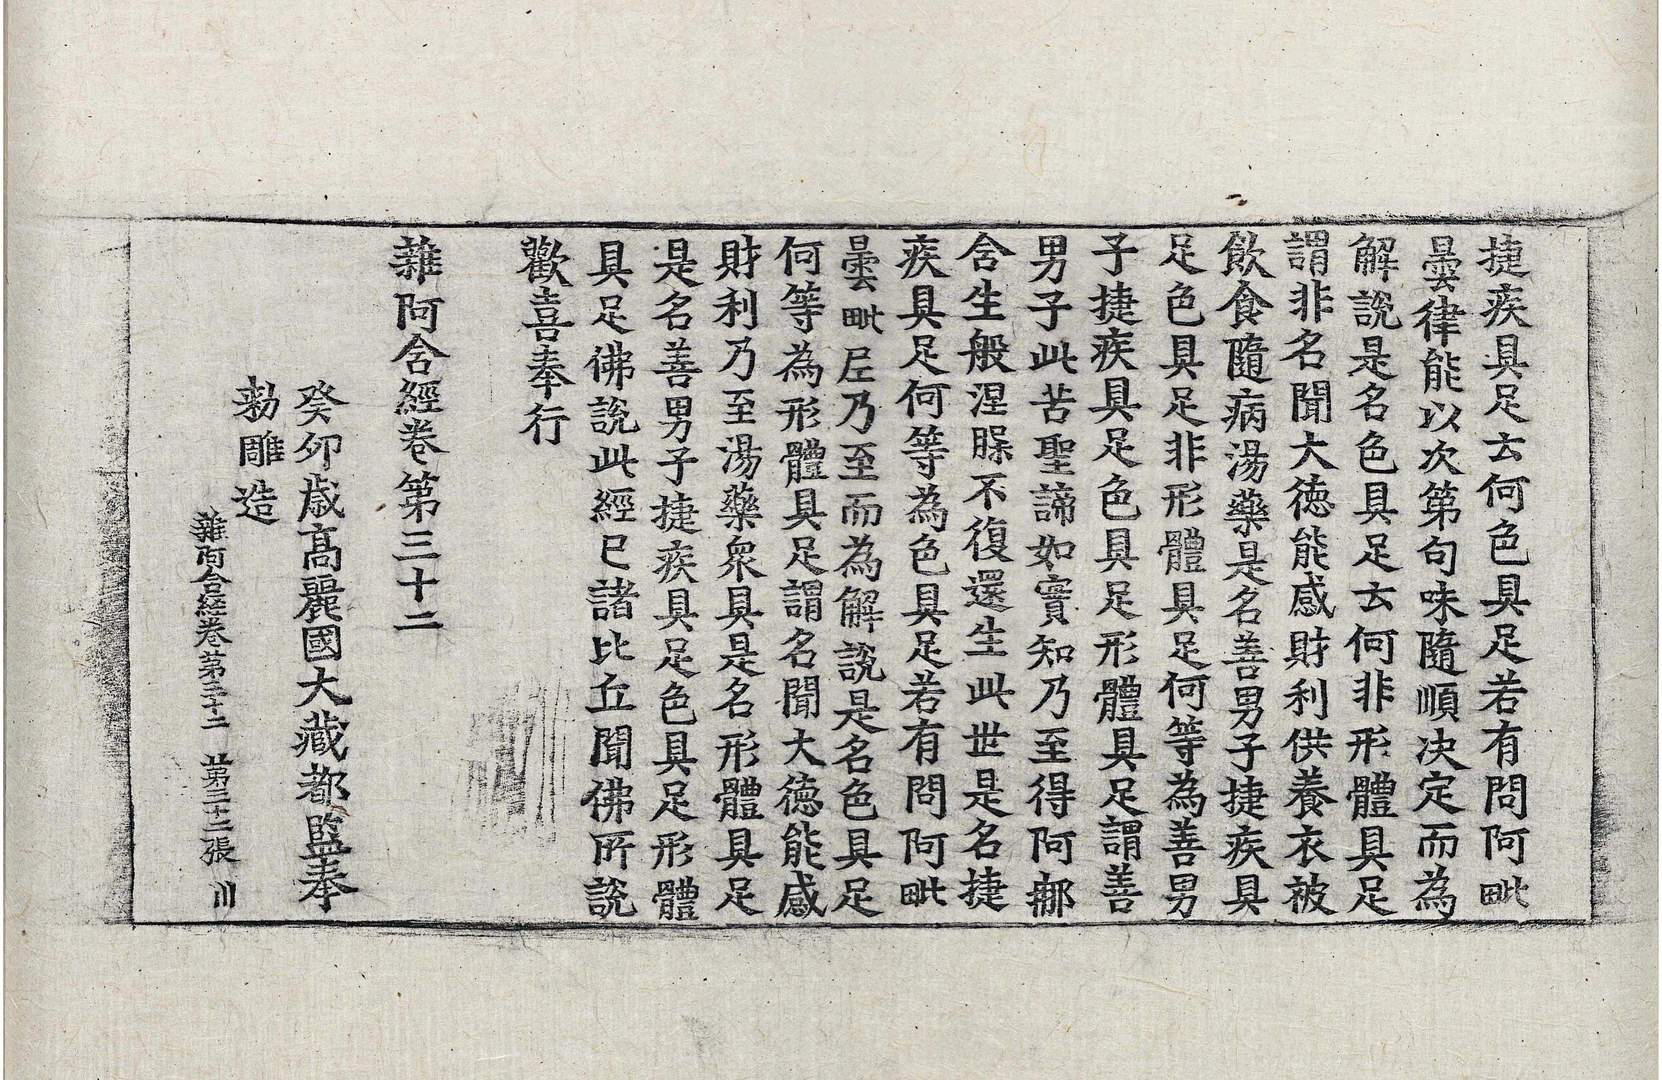 捷疾具足去何色具足若有問阿毗
曇律能以次第句味隨順決定而為
解說是名色具足去何非形體具足
謂非名聞大德能感財利供養衣被
飲食隨病湯藥是名善男子捷疾具
足色具足非形體具足何等為善男
子捷疾具足色具足形體具足謂善
男子此苦聖諦如實知乃至得阿那
含生般涅槃不復還生此世是名捷
疾具足何等為色具足若有問阿毗
曇毗尼乃至而為解說是名色具足
何等為形體具足謂名聞大德能感
財利乃至湯藥眾具是名形體具足
是名善男子捷疾具足色具足形體
具足佛說此經已諸比丘聞佛所說
歡喜奉行
雜阿含經卷第三十二
癸卯歲高麗國大藏都監奉
勑雕造
雜阿含經卷第三十二 第三十二張